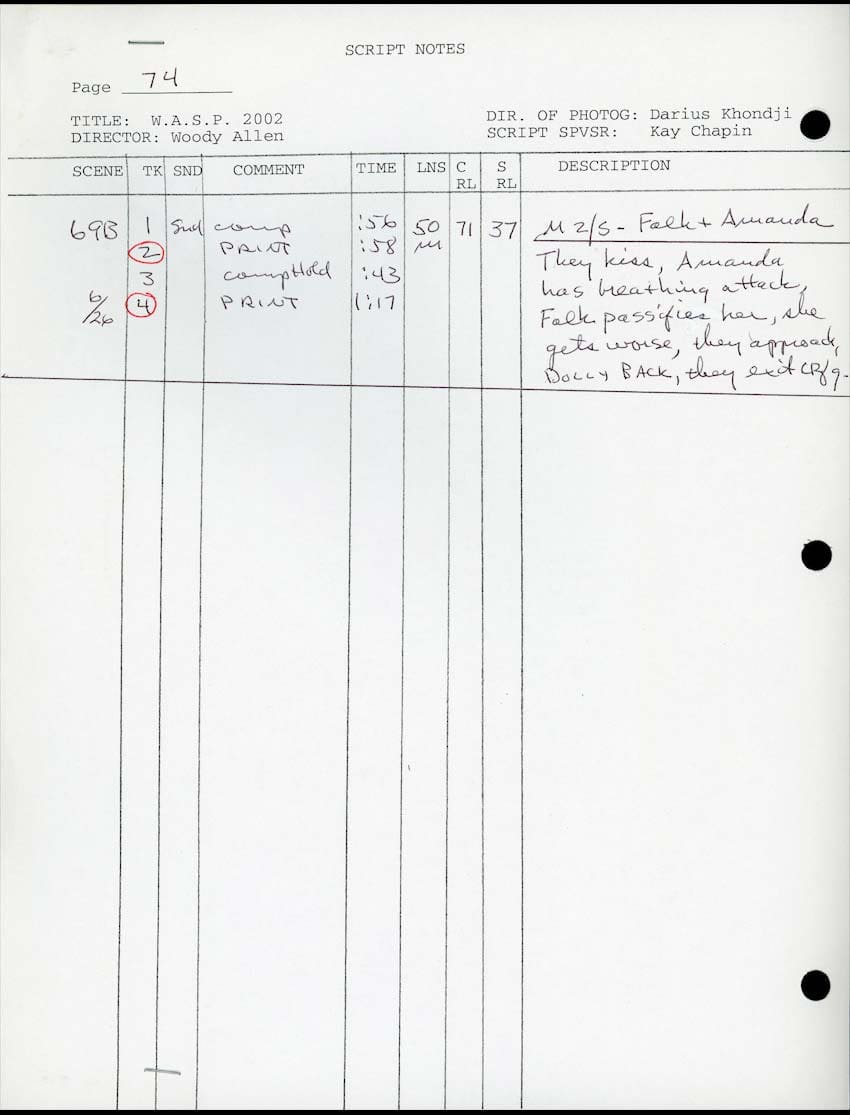 SCRIPT NOTES
Page 74
TITLE: W.A.S.P. 2002
DIR. OF PHOTOG: Darius Khondji
DIRECTOR: Woody Allen
SCRIPT SPVSR: Kay Chapin
SCENE TK SND COMMENT TIME LNS C RL S RL DESCRIPTION
69B 1 Snd comp :56 50 71 37 M 2/S - Falk + Amanda
2 PRINT :58 m They kiss, Amanda
3 comp Hold :43 has breathing attack,
6/26 4 PRINT 1:17 Falk passifies her, she
gets worse, they approach,
DOLLY BACK, they exit CR/fg.